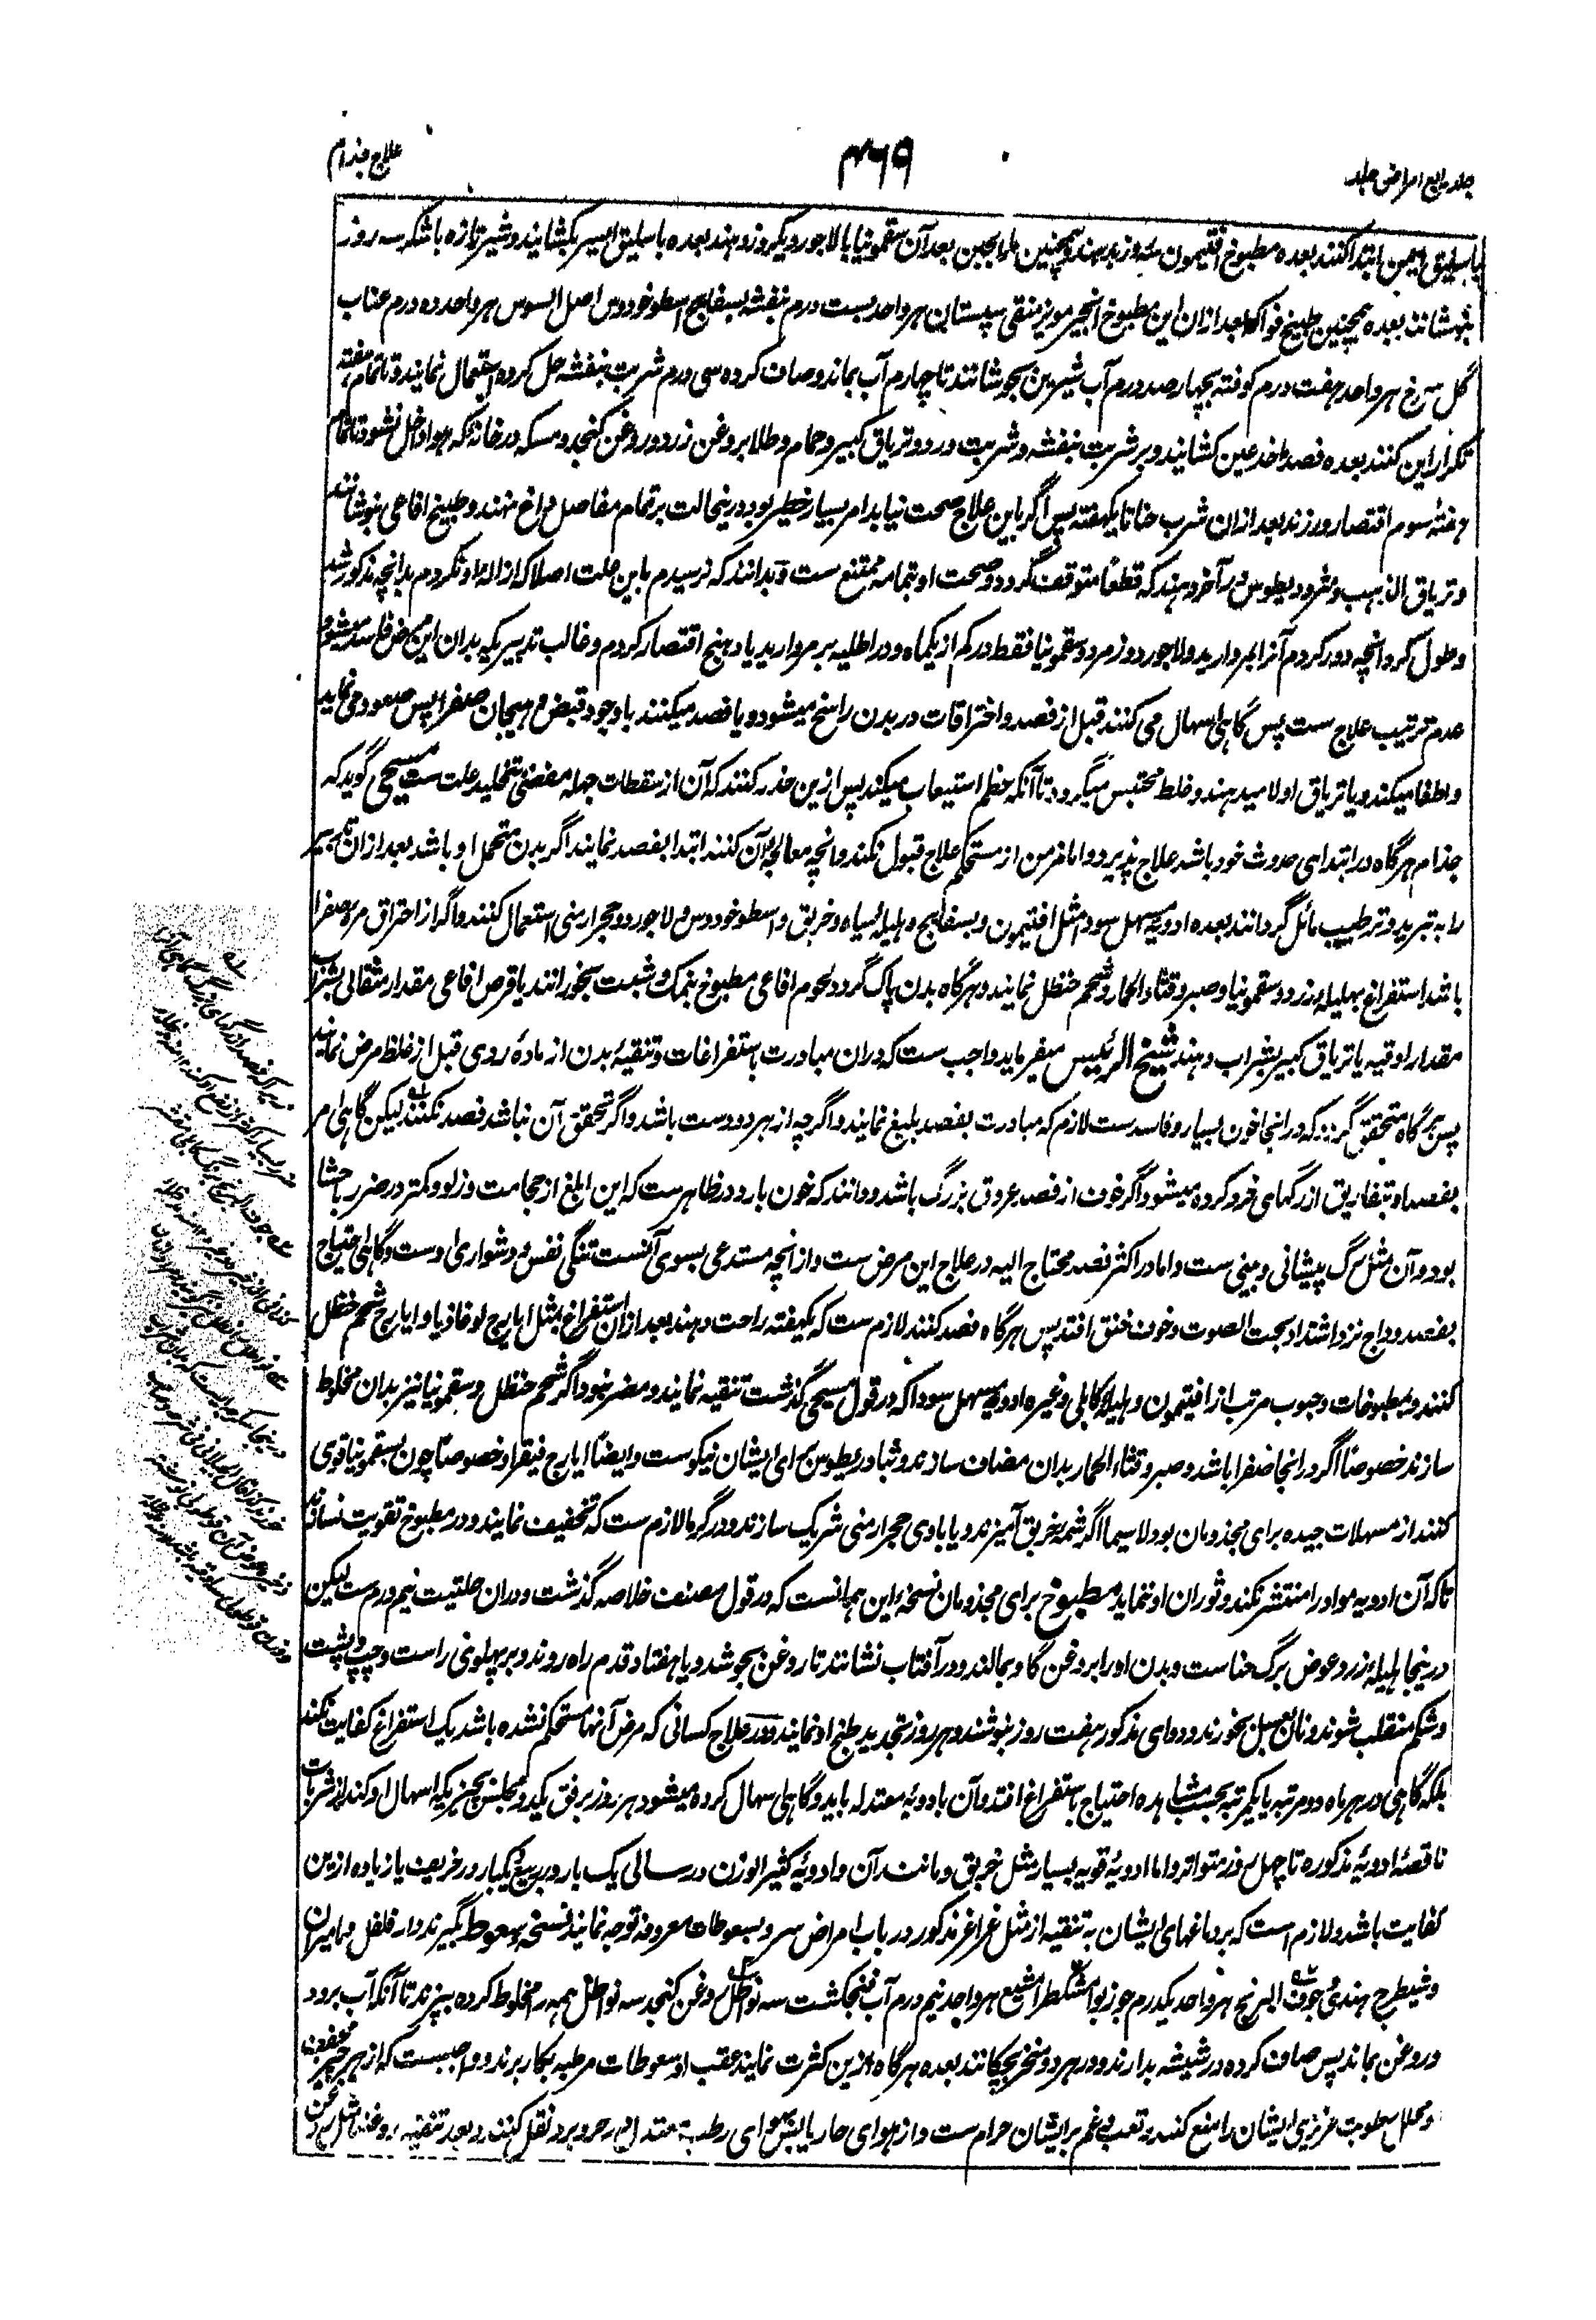 جلد رابع امراض جلد
۴۶۹
علاج جذام
باسلیق ایمن ابتدا کنند بعده مطبوخ افتیمون سه روز بدهند و همچنین ماء الجبن بعد آن سقمونیا با لاجورد یکروز دهند بعده باسلیق ایسر بکشایند و شیر تازه با شکر سه روز
بنوشانند بعده همچنین طبیخ فواکه بعد ازان این مطبوخ انجیر مویز منقی سپستان هر واحد بست درم بنفشه بسفایج اسطوخودوس اصل السوس هر واحد ده درم عناب
گل سرخ هر واحد هفت درم کوفته بچهار صد درم آب شیرین بجوشانند تا چهارم آب بماند و صاف کرده سی درم شربت بنفشه حل کرده استعمال نمایند و تا تمام هفته
تکرار این کنند بعده فصد اخدعین کشایند و بر شربت بنفشه و شربت ورد و تریاق کبیر و حمام و طلا بروغن زرد و روغن کنجد و مسکه در خانه که هوا داخل نشود تا تمام
هفتهٔ سوم اقتصار ورزند بعد ازان شرب حنا تا یکهفته پس اگر باین علاج صحت نیابد امر بسیار خطیر بود درینحالت بر تمام مفاصل داغ نهند و طبیخ افاعی بنوشانند
و تریاق الذهب و مثرودیطوس در آخر دهند که قطعاً متوقف گردد و صحت او بتمامه ممتنع ست و بدانند که نرسیدم باین علت اصلا که ازاله او نکردم بدانچه مذکور شد
و طول کرد و آنچه دور کردم آنرا بمروارید و لاجورد و زمرد و سقمونیا فقط در کم از یکماه و در اطلیه بر مروارید یا دهنج اقتصار کردم و غالب تدبیریکه بدان این مرض فاسد میشود
عدم ترتیب علاج ست پس گاهی اسهال می کنند قبل از فصد و احتراقات در بدن راسخ میشود و یا فصد میکنند با وجود قبض و هیجان صفرا پس صعود می نماید
و اطفا میکند و یا تریاق اولا میدهند و خلط محتبس میگردد تا آنکه عظم استیعاب میکند پس ازین حذر کنند که آن از سقطات جهله مفضی بتخلید علت ست مسیحی گوید که
جذام هرگاه در ابتدای حدوث خود باشد علاج پذیرد و اما مزمن از مستحکم علاج قبول نکند و آنچه معالجه آن کنند ابتدا بفصد نمایند اگر بدن متحمل او باشد بعد ازان تدبیر
را به تبرید و ترطیب مائل گردانند بعده ادویه مسهل سودا مثل افتیمون و بسفایج و هلیله سیاه و خربق و اسطوخودوس و لاجورد و حجر ارمنی استعمال کنند و اگر از احتراق مره صفرا
باشد استفراغ بهلیله زرد و سقمونیا و صبر و قثاء الحمار و شحم حنظل نمایند و هرگاه بدن پاک گردد لحوم افاعی مطبوخ بنمک و شبت بخورانند یا قرص افاعی مقدار مثقالی بشراب
مقدار اوقیه یا تریاق کبیر بشراب دهند شیخ الرئیس میفرماید واجب ست که دران مبادرت باستفراغات و تنقیهٔ بدن از مادهٔ ردی قبل از غلظ مرض نمایند
پس هرگاه متحقق گردد که در انجا خون بسیار و فاسد ست لازم که مبادرت بفصد بلیغ نمایند و اگرچه از هر دو دست باشد و اگر تحقق آن نباشد فصد نکنند لیکن گاهی امر
بفصد او بتفاریق از رگهای خرد کرده میشود اگر خوف از فصد عروق بزرگ باشد و دانند که خون بارد در ظاهر ست که این ابلغ از حجامت و زلو و کمتر در ضرر باحشا
بود و آن مثل رگ پیشانی و بینی ست و اما در اکثر فصد محتاج الیه در علاج این مرض ست و از انچه مستدعی بسوی آنست تنگی نفس و دشواری اوست و گاهی احتیاج
بفصد وداج نزد اشتداد بحت الصوت و خوف خنق افتد پس هرگاه فصد کنند لازم ست که یکهفته راحت دهند بعد ازان استفراغ بمثل ایارج لوغاذیا و ایارج شحم حنظل
کنند و بمطبوخات و حبوب مرتب از افتیمون و هلیلهٔ کابلی و غیره ادویه مسهل سودا که در قول مسیحی گذشت تنقیه نمایند و مضر نبود اگر شحم حنظل و سقمونیا نیز بدان مخلوط
سازند خصوصاً اگر در انجا صفرا باشد و صبر و قثاء الحمار بدان مضاف سازند و ثیادریطوس برای ایشان نیکوست و ایضاً ایارج فیقرا و خصوصاً چون بسقمونیا قوی
کنند از مسهلات جیده برای مجذومان بود لاسیما اگر شمه خربق آمیزند و یا بادی حجر ارمنی شریک سازند و در گرما لازم ست که تخفیف نمایند و در مطبوخ تقویت نسازند
تا که آن ادویه مواد را منتشر نکند و ثوران او نماید مطبوخ برای مجذومان نسخهٔ این همانست که در قول مصنف خلاصه گذشت و دران حلتیت نیم درم ست لیکن
درینجا هلیله زرد و عوض برگ حناست و بدن او را بروغن گاو بمالند و در آفتاب نشانند تا روغن بجوشد و یا هفتاد قدم راه روند و بر پهلوی راست و چپ و پشت
و شکم منقلب شوند و نان بعسل بخورند و دوای مذکور هفت روز بنوشند و هر روز تجدید طبخ او نمایند و در علاج کسانی که مرض آنها مستحکم نشده باشد یک استفراغ کفایت نکند
بلکه گاهی در هر ماه دو مرتبه یا یکمرتبه بحسب مشاهده احتیاج باستفراغ افتد و آن بادویهٔ معتدله باید و گاهی اسهال کرده میشود هر روز برفق یکد و مجلس بچیزیکه اسهال او کند از شربات
ناقصهٔ ادویهٔ مذکوره تا چهل روز متواتر و اما ادویهٔ قویه بسیار مثل خربق و مانند آن و ادویهٔ کثیر الوزن در سالی یک بار در ربیع و یکبار در خریف یا زیاده ازین
کفایت باشد و لازم است که بر دماغهای ایشان به تنقیه از مثل غراغر مذکور در باب امراض سر و سعوطات معروفه توجه نمایند نسخهٔ سعوط بگیرند دار فلفل و مامیران
و شیطرج هندی و جوف البرنج هر واحد یکدرم جوزبوا مشکطرا مشیع هر واحد نیم درم آب فنجنکشت سه نواطل روغن کنجد سه نواطل همه را مخلوط کرده بپزند تا آنکه آب برود
و روغن بماند پس صاف کرده در شیشه بدارند و در هر دو منخر بچکانند بعده هرگاه ازین کثرت نمایند عقب او سعوطات مرطبه بکار برند و واجبست که از هر چیز مجفف
و محلل رطوبت غریزی ایشان را منع کنند و تعب و غم بر ایشان حرام ست و از هوای حار یابس بهوای رطب معتدل در حر و برد نقل کنند و بعد تنقیه روغنها مثل روغن